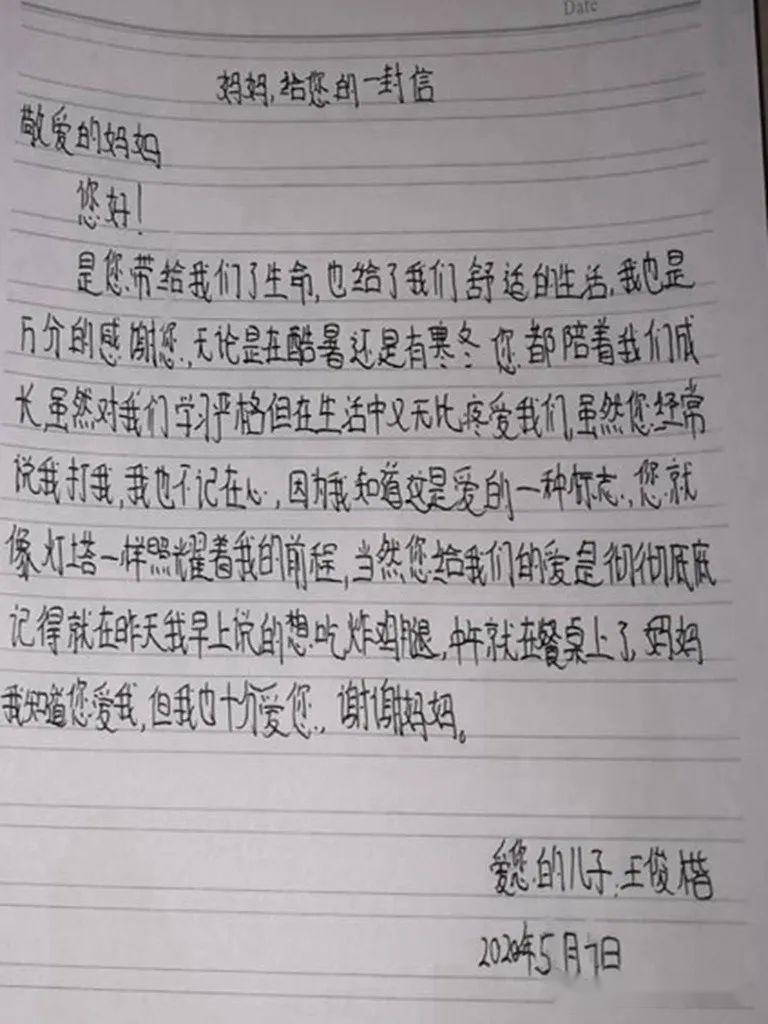 Date
妈妈,给您的一封信
敬爱的妈妈
您好!
是您带给我们了生命,也给了我们舒适的生活,我也是
万分的感谢您,无论是在酷暑还是有寒冬您都陪着我们成
长,虽然对我们学习严格但在生活中又无比疼爱我们,虽然您经常
说我打我,我也不记在心,因为我知道这是爱的一种标志,您就
像灯塔一样照耀着我的前程,当然您给我们的爱是彻彻底底
记得就在昨天我早上说的想吃炸鸡腿,中午就在餐桌上了,妈妈
我知道您爱我,但我也十分爱您,谢谢妈妈。
爱您的儿子:王俊楷
2020年5月7日